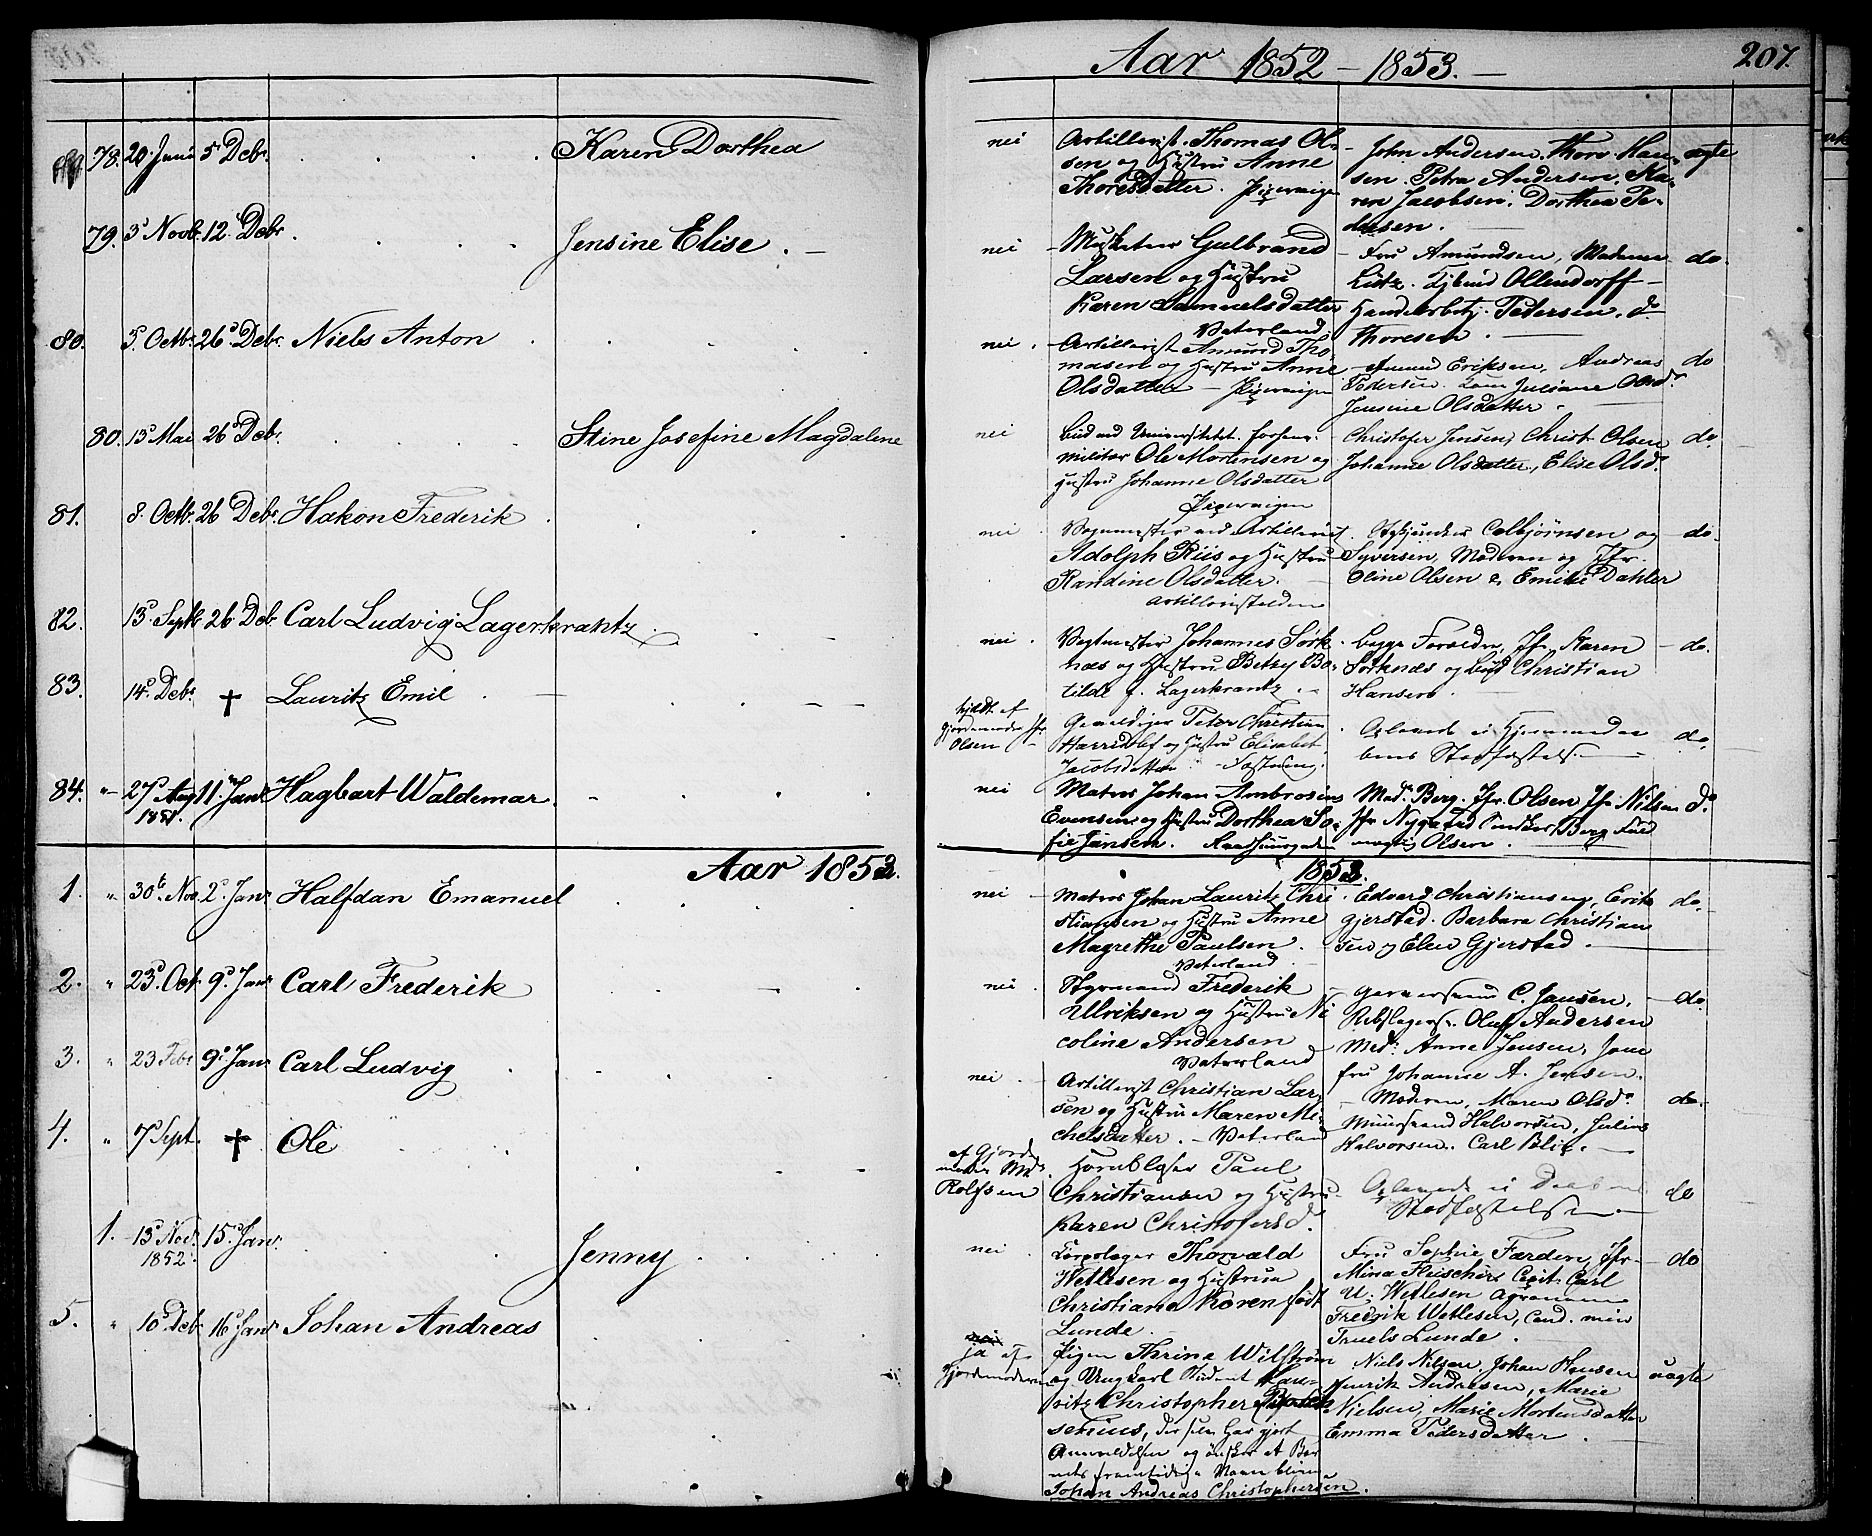 Aar 1852 – 1853.
207.
78. 20 Juni 5 Debr. Karen Dorthea
nei
Artillerist Thomas Ol-
sen og Hustru Anne
Thoresdatter. Pipervigen
John Andersen, Thorv. Han-
sen. Petra Andersen, Ka-
ren Jacobsen, Dorthea Pe-
dersen.
ægte
79. 3 Novb. 12. Debr Jensine Elise.
nei
Musketeer Gulbrand
Larsen og Hustru
Karen Samuelsdatter
Vaterland.
Fru Amundsen, Madame
Lütz. Ollendorff
Pedersen. do
Thoresen.
do.
80. 5. Octb. 26 Debr. Niels Anton
nei.
Artillerist Amund Tho-
masen og Hustru Anne
Olsdatter – Pipervigen
Amund Eriksen, Andreas
Pedersen. Juliane Olsdr.
Jensine Olsdatter.
do
80. 13 Mai 26 Debr. Stine Josefine Magdalene
nei
Bud ved Universitetet. forhenv.
militær Ole Mortensen og
Hustru Johanne Olsdatter
Pipervigen
Christofer Jensen, Christ. Olsen
Johanne Olsdatter, Elise Olsdr.
do.
81. 8. Octb. 26 Debr. Hakon Frederik
nei
Vognmester ved Artilleriet
Adolph Riis og Hustru
Randine Olsdatter.
Colbjørnsen og
Syversen, Moderen og Jfr.
Oline Olsen & Emilie Dahler
do.
82. 13 Septb 26 Deb Carl Ludvig Lagerkrantz.
nei.
Vagtmester Johannes Sørk-
næs og Hustru Betzy Bo-
tilde f. Lagerkrantz.
Begge Forældre, Jfr. Karen
Sørknæs og Christian
Hansen.
do.
83. 14 Debr. † Lauritz Emil.
hjdbt. af
Gjordemoder Jfr
Olsen
Gevaldiger Peter Christian
og Hustru Elisabet
Jacobsdatter. Fæstning.
Aflevede ei Hjemmedaa-
bens Stadfæstelse.
do.
84. 27 Aug 11. Janr Hagbart Waldemar.
1851.
nei
Matros Johan Ambrosius
Evensen og Hustru Dorthea So-
fie Jansen.
Mad. Berg. Jfr. Olsen, Jfr Nilsen
Jfr Nygaard Berg Fuld
mægtig Olsen.
do
Aar 1853.
1853.
1. 30te Nov. 2 Janr Halfdan Emanuel
nei
Matros Johan Lauritz Chri-
stiansen og Hustru Anne
Magrethe Paulsen.
Vaterland.
Edvard Christiansen, Erik
Gjerstad. Barbara Christian
sen og Elen Gjerstad.
do.
2. 23 Oct. 9. Janr Carl Frederik
nei.
Styrmand Frederik
Ulriksen og Hustru Ni
coline Andersen
Vaterland
C. Jansen,
Rebslagersv. Oluf Andersen
Mad. Anne Jensen, Jom
fru Johanne A. Jensen.
do.
3. 23 Febr. 9. Janr Carl Ludvig
nei.
Artillerist Christian Lar-
sen og Hustru Maren Mi-
chelsdatter. – Vaterland
Moderen, Maren Olsdr.
Muursvend Halvorsen, Julius
Halvorsen. Carl Blix.
do.
4. 7 Sept. † Ole
af Gjorde
moder Md.
Rolfsen
Hornblæser Paul
Christiansen og Hustru
Karen Christofersd.
Aflevede ei Daabens
Stadfæstelse.
do
1. 13 Nov. 15. Janr. Jenny
1852.
nei.
Thorvald
Wetlesen og Hustru
Christiane Koren født
Lunde.
Fru Sophie Færden, Jfr
Mina Fleischer Capit. Carl
U. Wetlesen agronom
Fredrik Wetlesen, Cand. min
Truels Lunde.
do
5. 10 Deb. 16 Janr. Johan Andreas
nei
ja af
Gjordemoderen
Pigen Thrine Wilstrøm
og Ungkarl Student Lau-
ritz Christopher
serius, der selv har gjort
Anmeldelsen og ønsker at Bar
nets fremtidige Navn bliver
Johan Andreas Christophersen.
Niels Nilsen, Johan Hansen
Henrik Andresen, Marie
Nielsen, Marie Mortensdatter
Emma Pedersdatter.
uægte